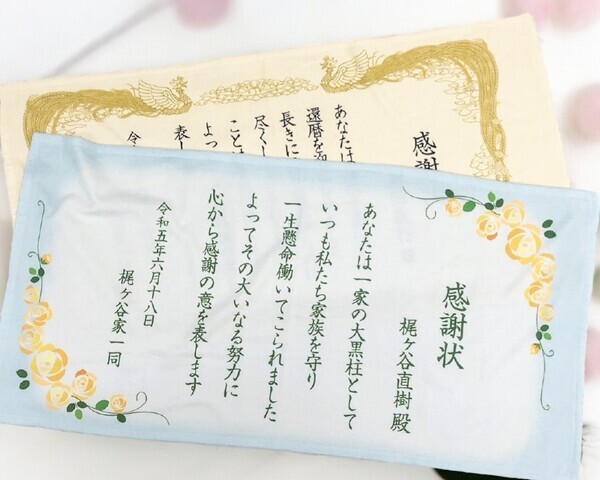 感謝状
梶ヶ谷直樹 殿
あなたは一家の大黒柱として
いつも私たち家族を守り
一生懸命働いてこられました
よってその大いなる努力に
心から感謝の意を表します
令和五年六月十八日
梶ヶ谷家一同
感謝
あなたは
還暦を
長きに
尽くし
ことは
よっ
表し
令